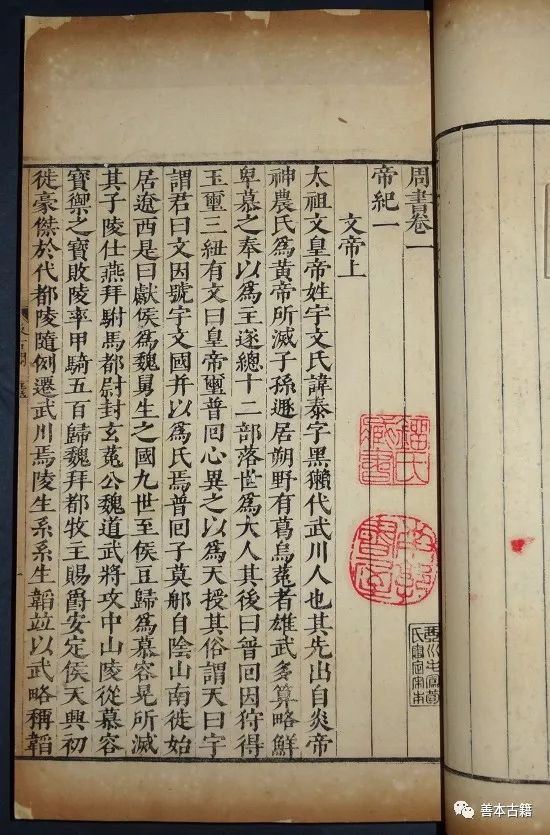 周書卷一
帝紀一
文帝上
太祖文皇帝姓宇文氏諱泰字黑獺代武川人也其先出自炎帝
神農氏為黃帝所滅子孫遯居朔野有葛烏菟者雄武多算略鮮
卑慕之奉以為主遂總十二部落世為大人其後曰普回因狩得
玉璽三紐有文曰皇帝璽普回心異之以為天授其俗謂天曰宇
謂君曰文因號宇文國并以為氏焉普回子莫那自陰山南徙始
居遼西是曰獻侯為魏舅生之國九世至侯豆歸為慕容晃所滅
其子陵仕燕拜駙馬都尉封玄菟公魏道武將攻中山陵從慕容
寶禦之寶敗陵率甲騎五百歸魏拜都牧主賜爵安定侯天興初
徙豪傑於代都陵隨例遷武川焉陵生系系生韜竝以武略稱韜
藏書
善本古籍